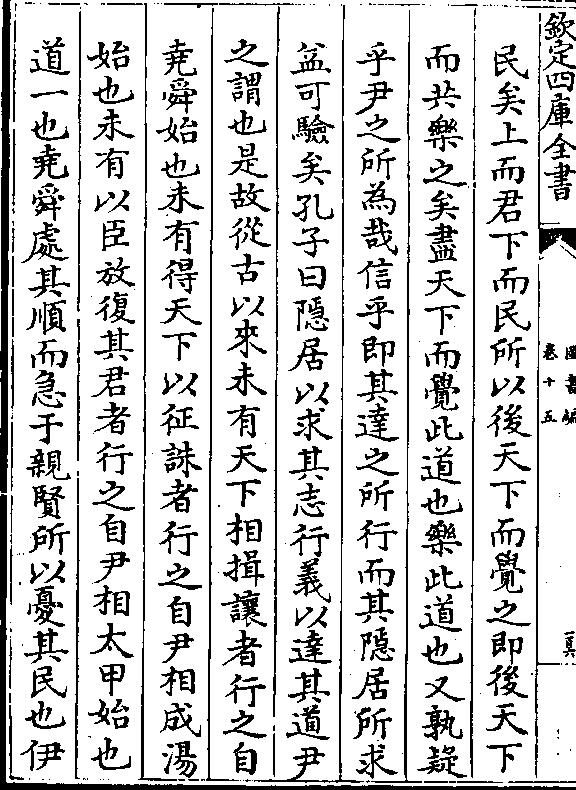 欽定四庫全書
圖書編
卷十五
民矣上而君下而民所以後天下而覺之即後天下
而共樂之矣盡天下而覺此道也樂此道也又孰疑
乎尹之所為哉信乎即其達之所行而其隱居所求
益可驗矣孔子曰隱居以求其志行義以達其道尹
之謂也是故從古以來未有天下相揖讓者行之自
堯舜始也未有得天下以征誅者行之自尹相成湯
始也未有以臣放復其君者行之自尹相太甲始也
道一也堯舜處其順而急于親賢所以憂其民也伊